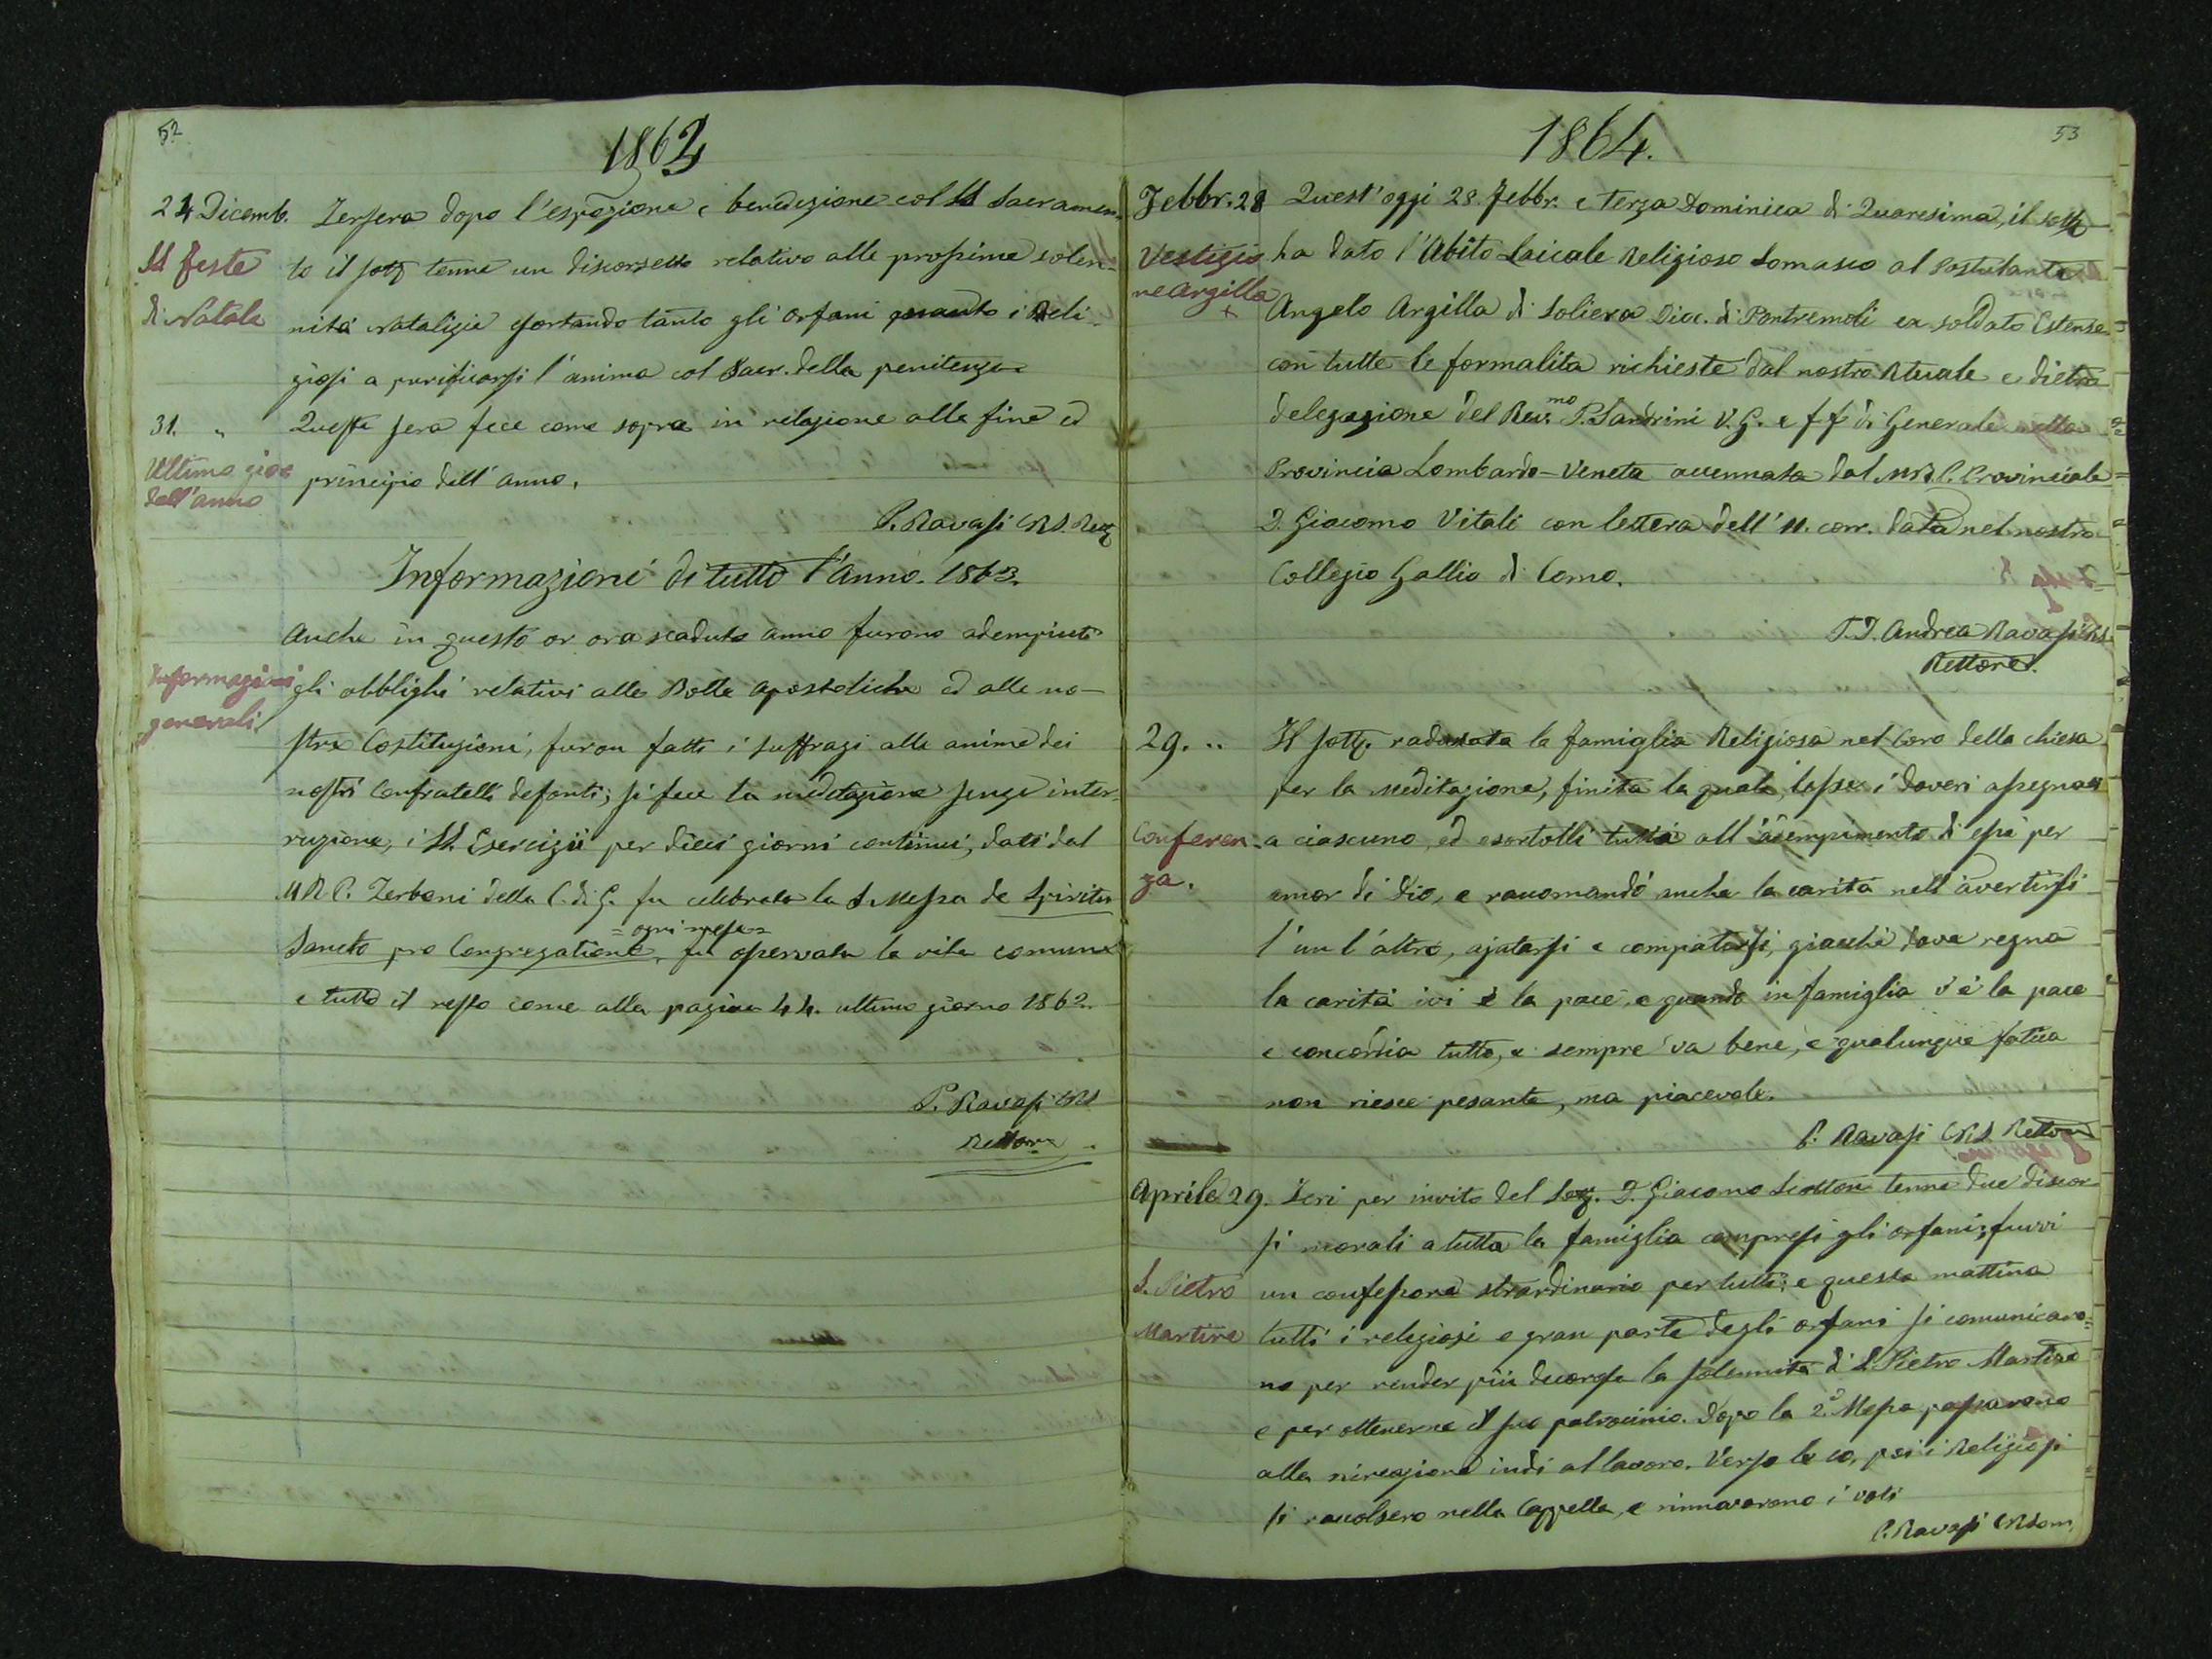 52
1863
24 Dicemb. Jersera dopo l'esposizione e benedizione col SS Sacramen-
SS feste to il sott tenne un discorsetto relativo alle prossime solen-
di Natale nità Natalizie esortando tanto gli orfani quanto i Reli-
giosi a purificarsi l'anima col Sacr. della penitenza
31. " Questa sera fece come sopra in relazione alla fine ed
Ultimo gior
dell'anno principio dell'anno.
P. Ravasi CRS. Rett
Informazioni di tutto l'Anno. 1863.
Anche in questo or ora scaduto anno furono adempiuti
Informazioni gli obblighi relativi alle Bolle Apostoliche ed alle no-
generali. stre Costituzioni, furon fatti i suffragi alle anime dei
nostri Confratelli defonti; si fece la meditazione senza inter-
ruzione, i SS. Esercizii per dieci giorni continui, dati dal
M R P. Zerboni della C. di G. fu celebrata la S. Messa de Spiritu
= ogni mese =
Sancto pro Congregatione, fu osservata la vita comune
e tutto il resto come alla pagina 44. ultimo giorno 1862.
P. Ravasi CRS
Rettore
53
1864.
Febbr. 28 Quest'oggi 28. Febbr. e terza Dominica di Quaresima, il sott
Vestizio ha dato l'Abito Laicale Religioso Somasco al Postulante
ne Argilla
+ Angelo Argilla di Soliera Dioc. di Pontremoli ex soldato Estense
con tutte le formalita richieste dal nostro Rituale e dietro
delegazione del Rev.mo P. Sandrini V. G. e ff di Generale nella
Provincia Lombardo-Veneta accennata dal M R. P. Provinciale
D. Giacomo Vitali con lettera dell'11. corr. data nel nostro
Collegio Gallio di Como.
P. D. Andrea Ravasi CRS
Rettore.
29. .. Il sott. radunata la famiglia Religiosa nel Coro della chiesa
per la Meditazione, finita la quale, lesse i doveri assegnati
Conferen- a ciascuno, ed esortolli tutti all'adempimento di essi per
za. amor di Dio, e raccomandò anche la carità nell'avertirsi
l'un l'altro, ajutarsi e compatirsi, giacchè dove regna
la carità ivi è la pace, e quando in famiglia v'è la pace
e concordia tutto, e sempre va bene, e qualunque fatica
non riesce pesante, ma piacevole.
P. Ravasi CRS Rettore
Aprile 29. Ieri per invito del Sott. D. Giacomo tenne due discor
si morali a tutta la famiglia compresi gli orfani; fuvvi
S. Pietro un confessore strardinario per tutti: e questa mattina
Martire tutti i religiosi e gran parte degli orfani si comunicaro=
no per render più decorosa la solennità di S. Pietro Martire
e per ottenerne il suo patrocinio. Dopo la 2.a Messa passarono
alla ricreazione indi al lavoro. Verso le 10, poi i Religiosi
si raccolsero nella Cappella, e rinnovarono i voti
P. Ravasi CRSom.